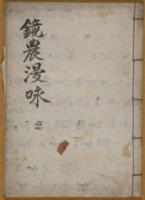 鏡農漫咏